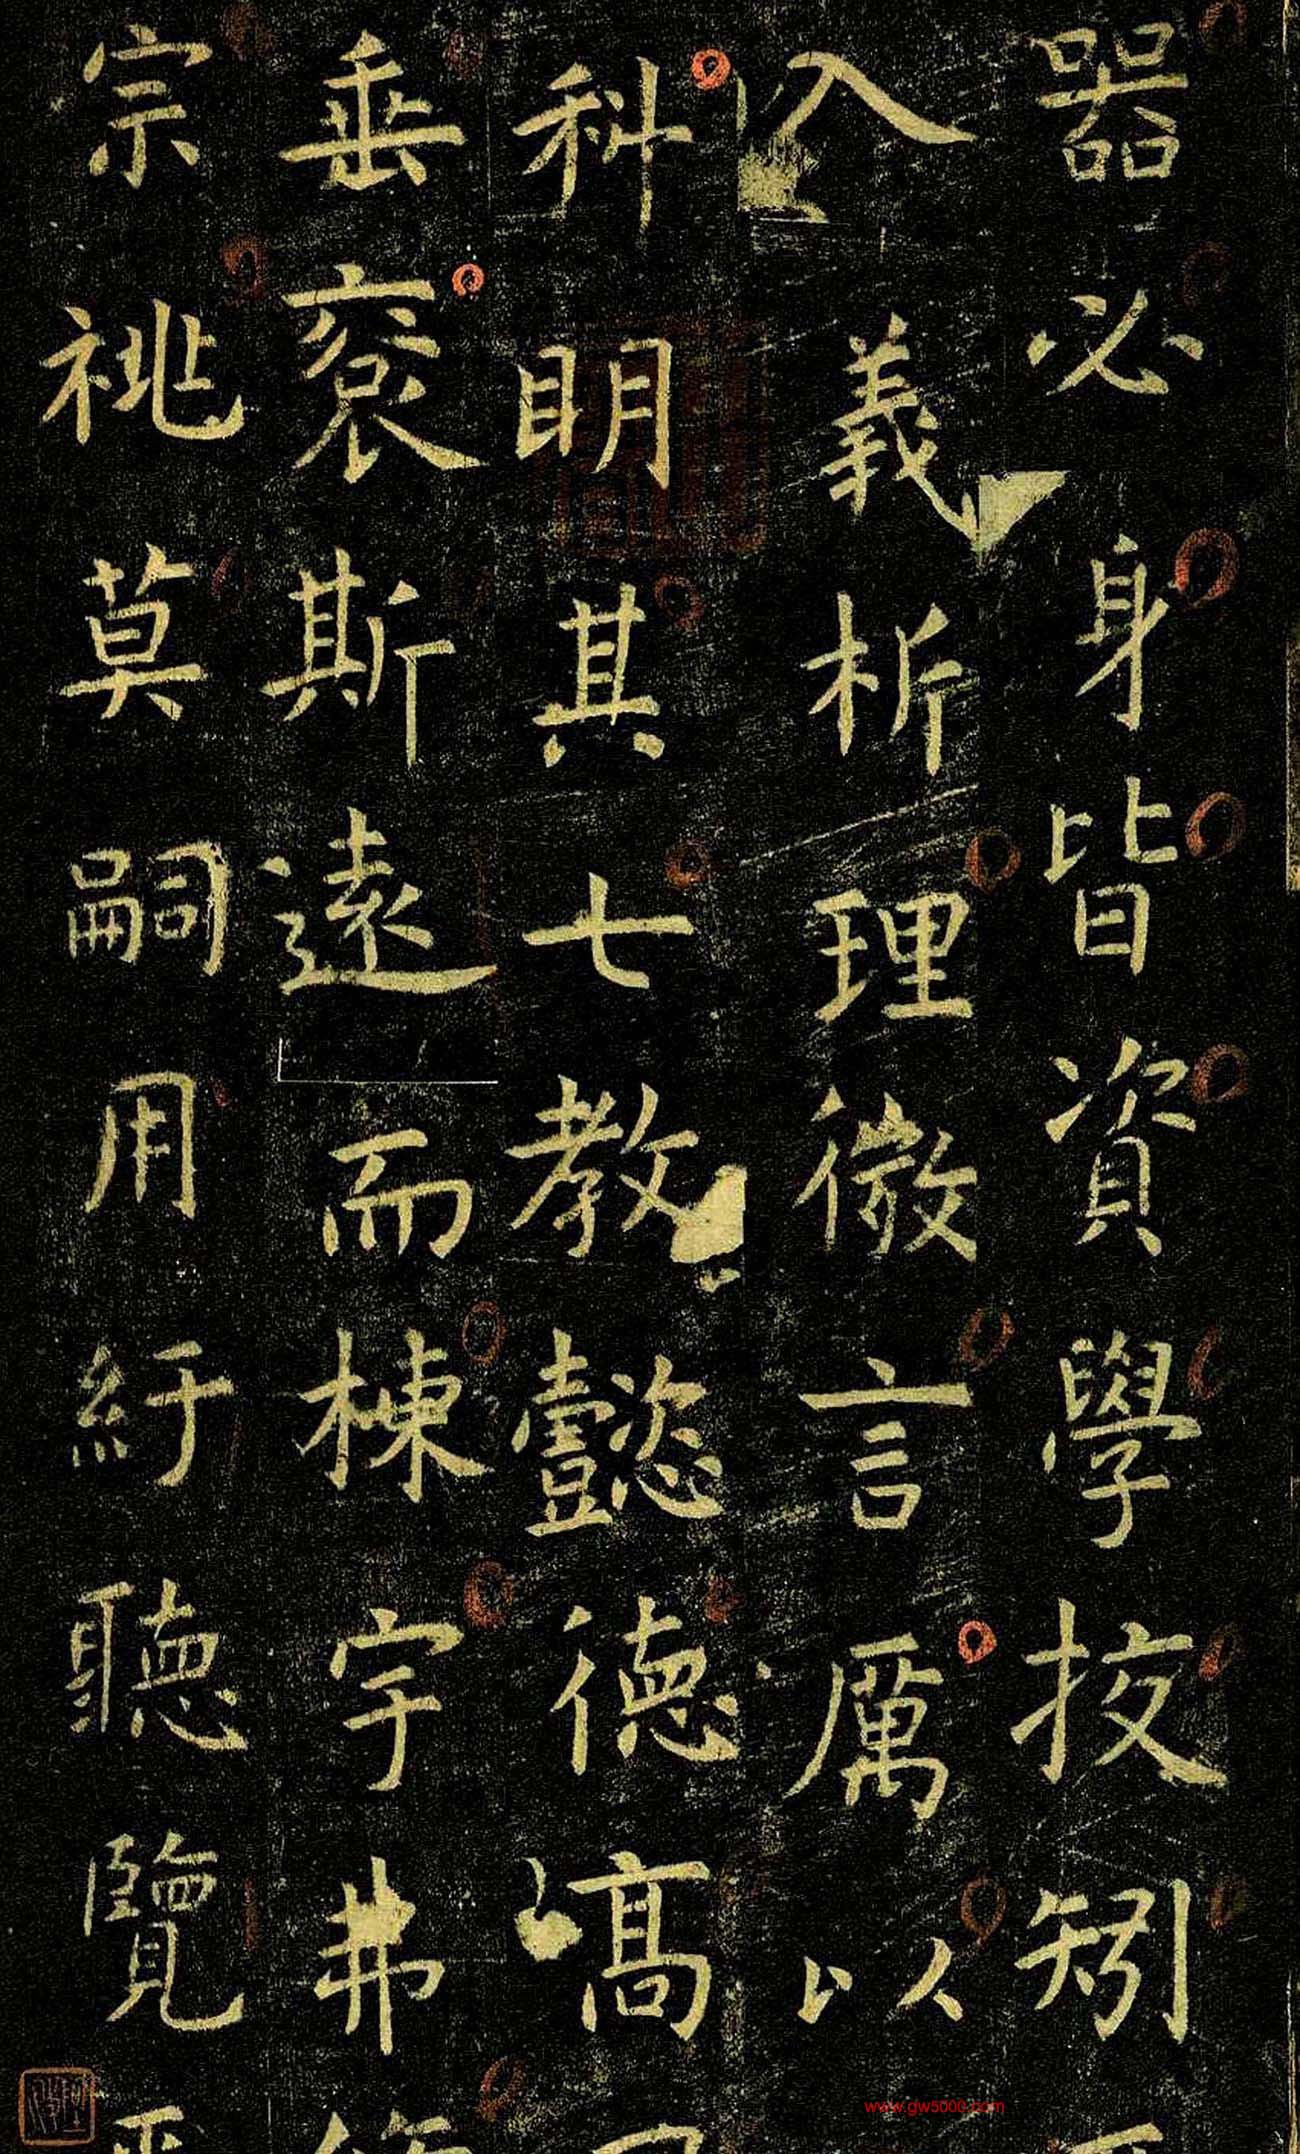 器必身皆資學挍矧
入義析理微言厲以
科明其七教懿德高
垂裒斯遠而棟宇弗
宗祧莫嗣用紆聽覽
www.gw5000.com